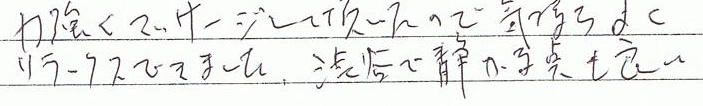 力強くマッサージして頂いたので気持ちよく
リラークスできました。浅店で静かな点も良い